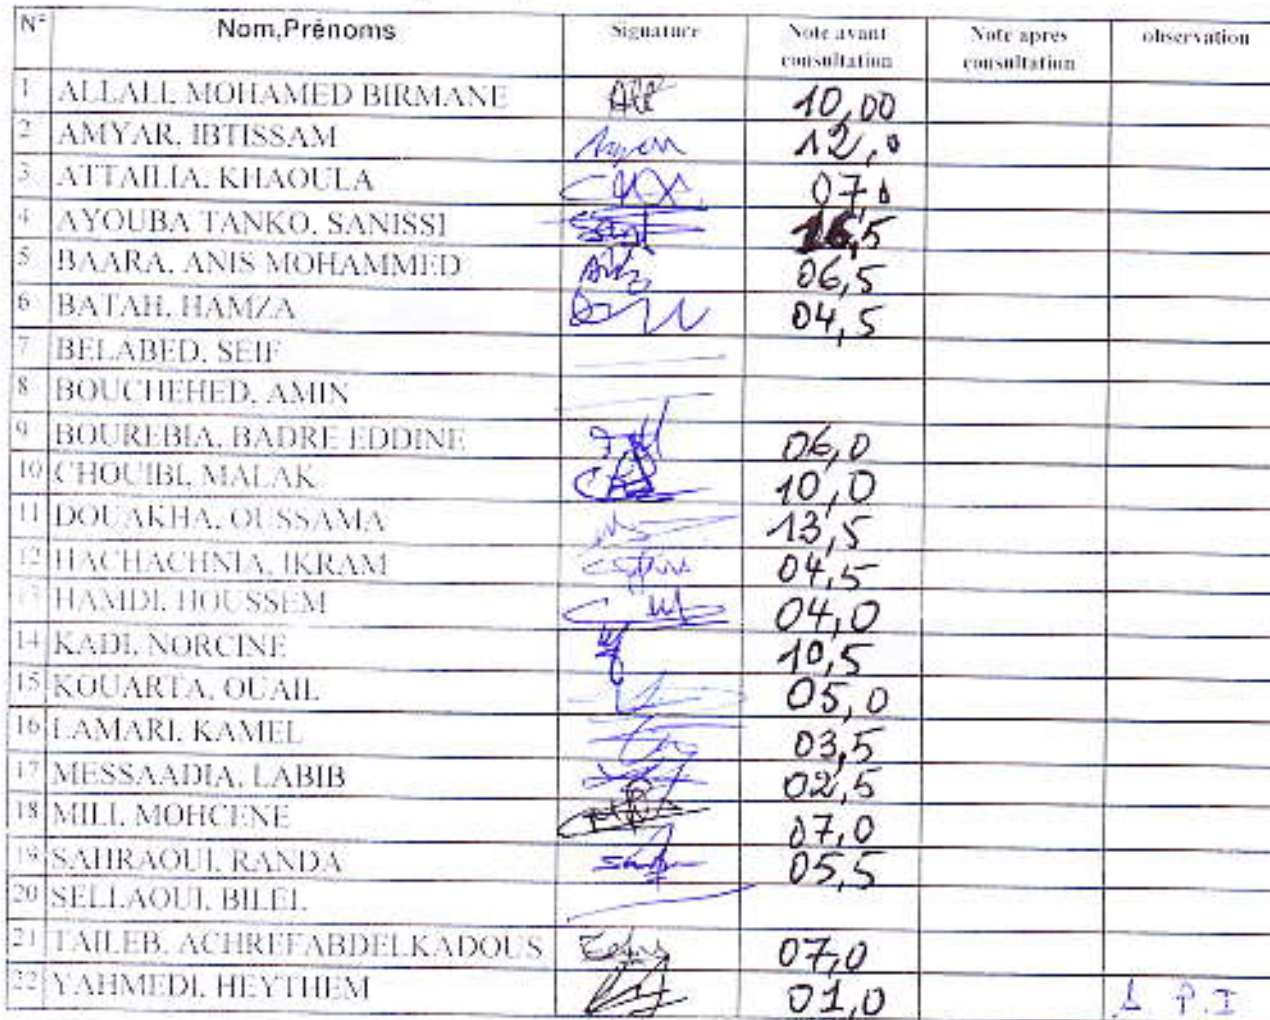 N° Nom,Prénoms Signature Note avant consultation Note apres consultation observation
1 ALLALI, MOHAMED BIRMANE 10,00
2 AMYAR, IBTISSAM 12,0
3 ATTAILIA, KHAOULA 07,0
4 AYOUBA TANKO, SANISSI 16,5
5 BAARA, ANIS MOHAMMED 06,5
6 BATAH, HAMZA 04,5
7 BELABED, SEIF
8 BOUCHEHED, AMIN
9 BOUREBIA, BADRE EDDINE 06,0
10 CHOUIBI, MALAK 10,0
11 DOUAKHA, OUSSAMA 13,5
12 HACHACHNIA, IKRAM 04,5
13 HAMDI, HOUSSEM 04,0
14 KADI, NORCINE 10,5
15 KOUARTA, OUAIL 05,0
16 LAMARI, KAMEL 03,5
17 MESSAADIA, LABIB 02,5
18 MILI, MOHCENE 07,0
19 SAHRAOUI, RANDA 05,5
20 SELLAOUI, BILEL
21 TAILEB, ACHREFABDELKADOUS 07,0
22 YAHMEDI, HEYTHEM 01,0 P.I